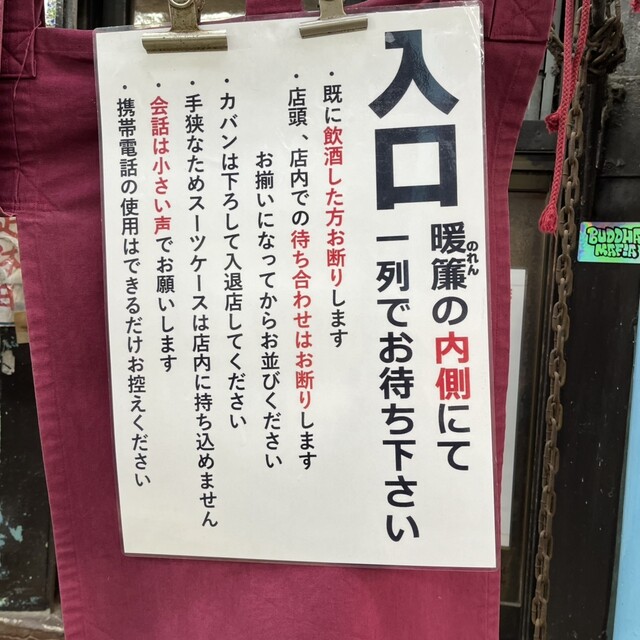 入口
暖簾の内側にて
のれん
一列でお待ち下さい
・既に飲酒した方お断りします
・店頭、店内での待ち合わせはお断りします
お揃いになってからお並びください
・カバンは下ろして入退店してください
・手狭なためスーツケースは店内に持ち込めません
・会話は小さい声でお願いします
・携帯電話の使用はできるだけお控えください
BUDDHA
MAFIA